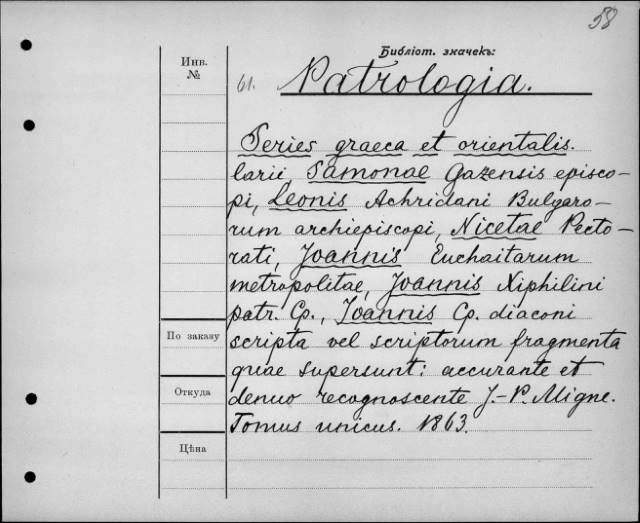 58
Библіот. значекъ:
Инв.
№
61. Patrologia.
Series graeca et orientalis.
larii, Samonae Gazensis episco-
pi, Leonis Achridani Bulgaro-
rum archiepiscopi, Nicetae Pecto-
rati, Joannis Euchaitarum
metropolitae, Joannis Xiphilini
patr. Cp., Joannis Cp. diaconi
По заказу
scripta vel scriptorum fragmenta
quae supersunt: accurante et
Откуда
denuo recognoscente J.-P. Migne.
Tomus unicus. 1863.
Цѣна